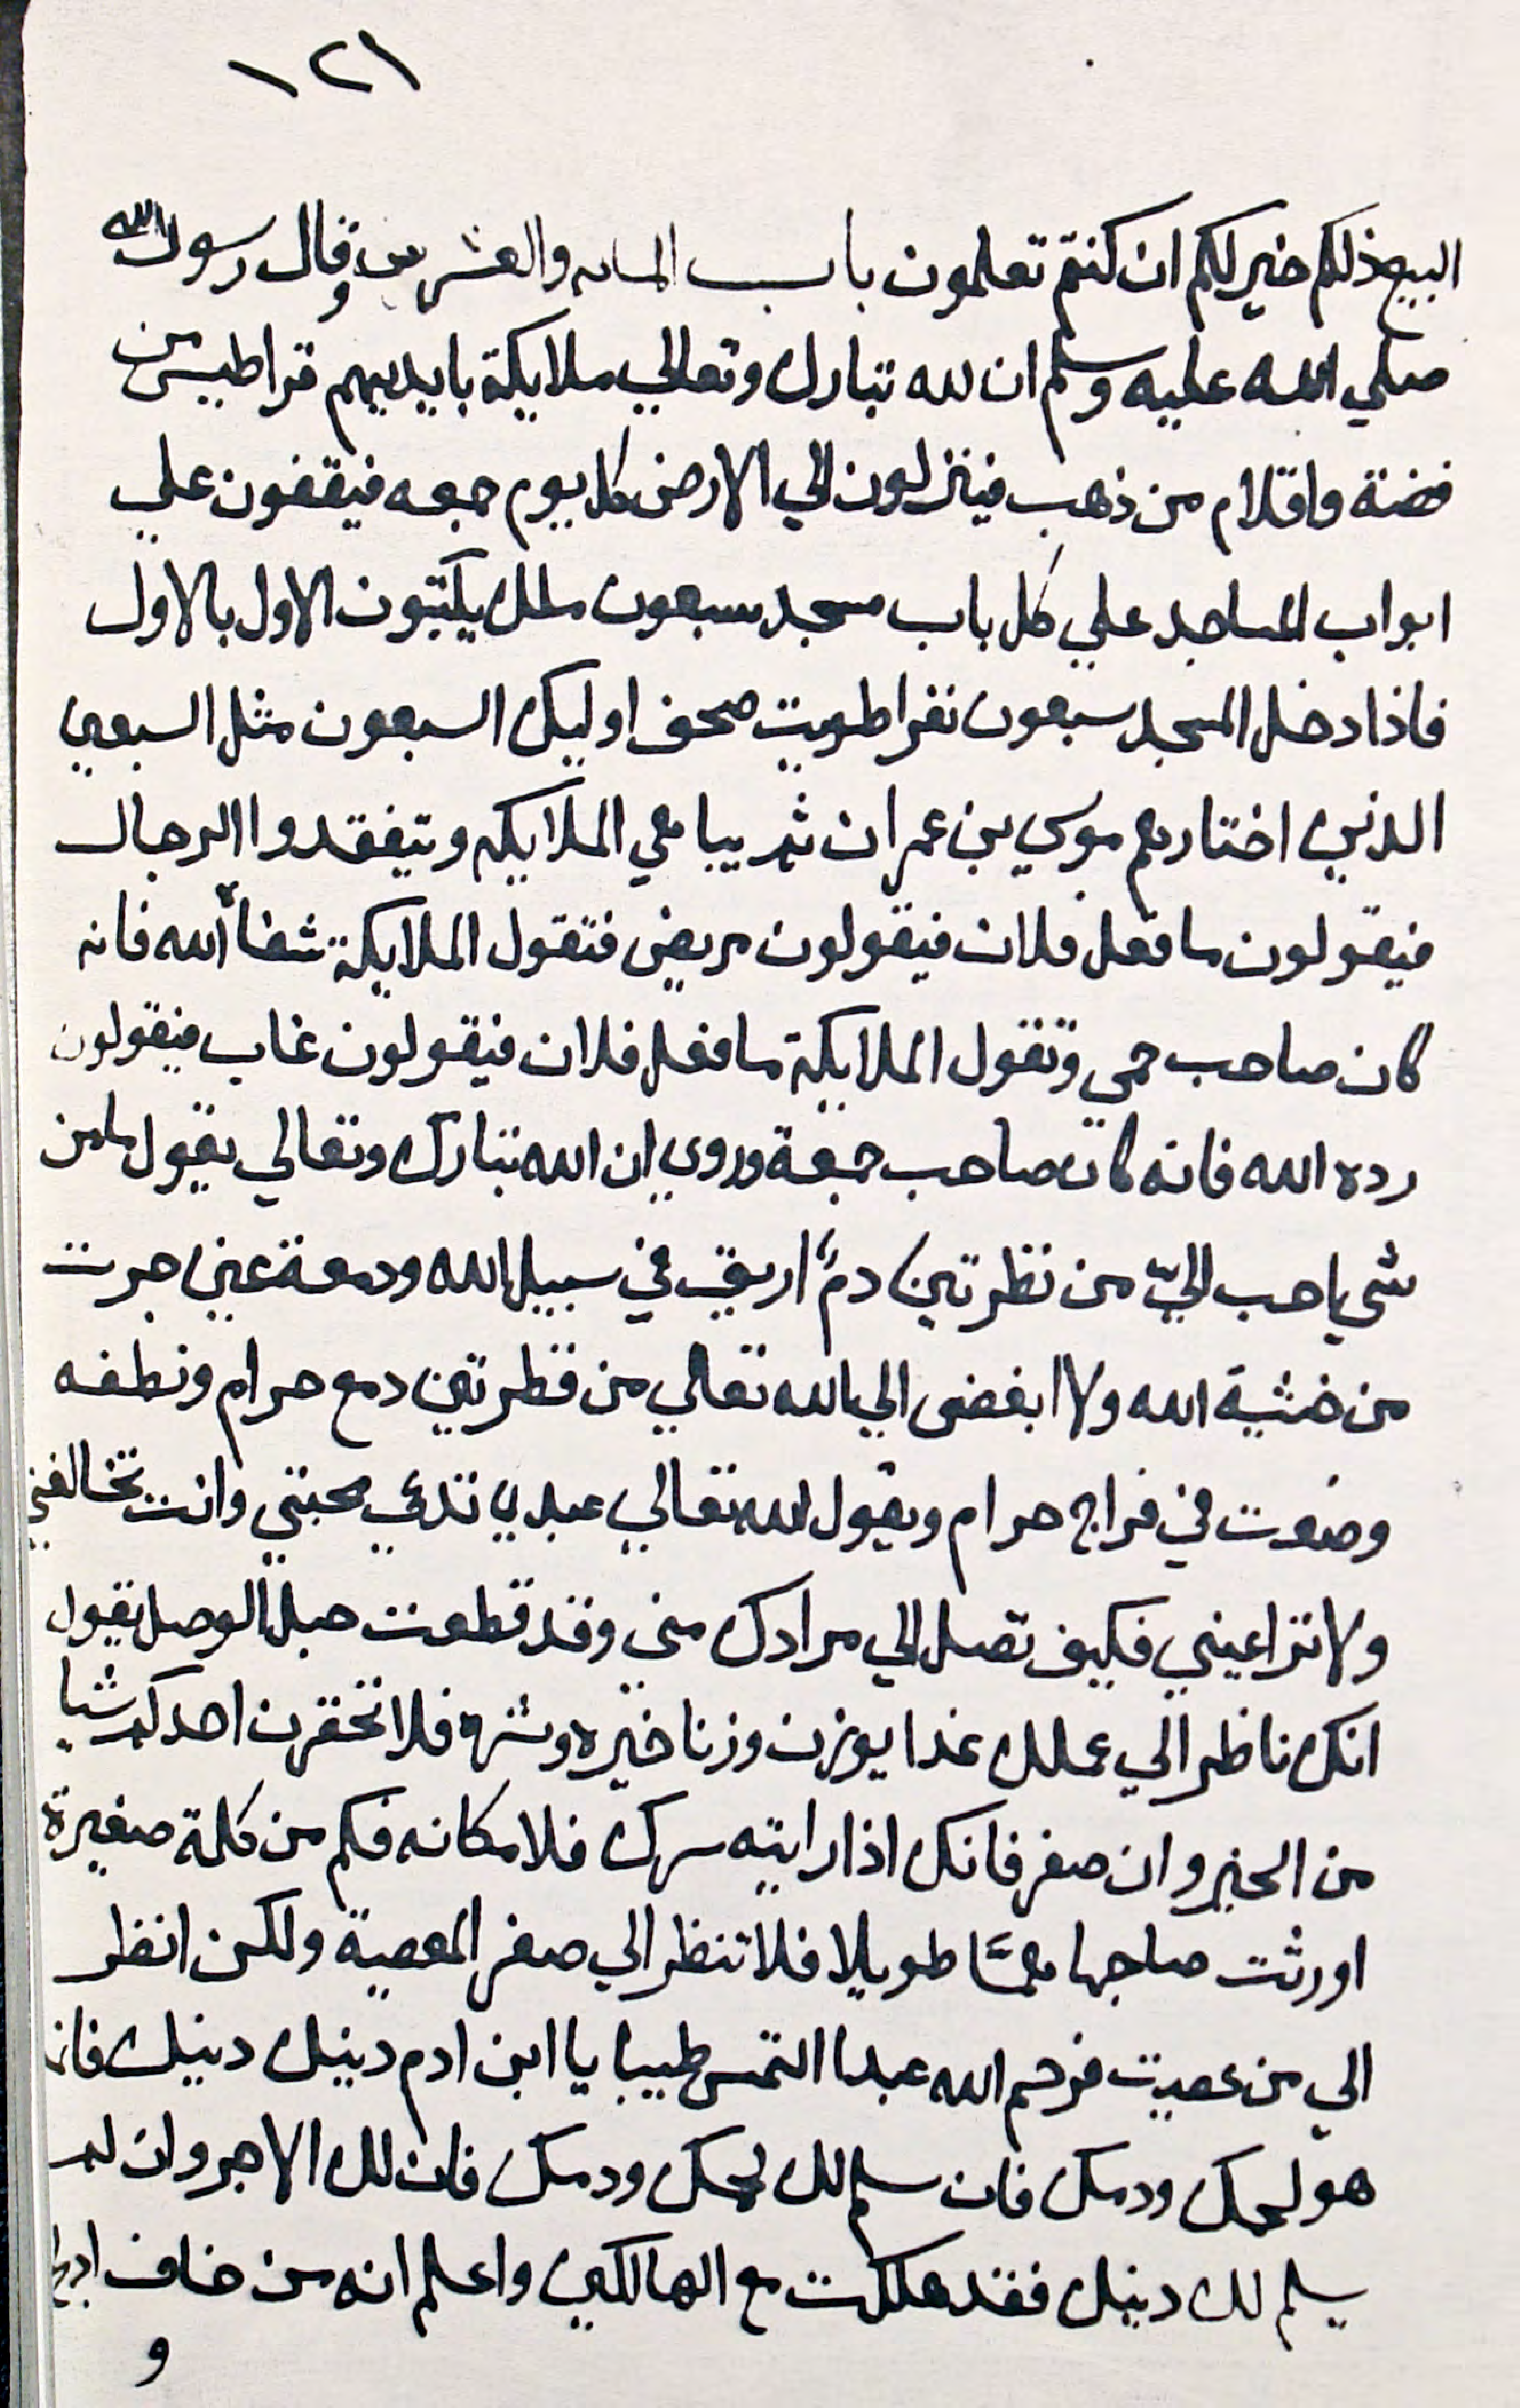 ١٢١
البيع ذلكم خير لكم ان كنتم تعلمون باب المايه والعشرون وقال رسول الله
صلي الله عليه وسلم ان لله تبارك وتعالي ملايكة بايديهم قراطيس من
فضة واقلام من ذهب فينزلون الي الارض كل يوم جمعه فيقفون علي
ابواب المساجد علي كل باب مسجد سبعون ملك يكتبون الاول بالاول
فاذا دخل المسجد سبعون نفرا طويت صحف اوليك السبعون مثل السبعين
الذين اختارهم موسي بن عمران ثم يباهي الملايكه ويتفقدوا الرجال
فيقولون ما فعل فلان فيقولون مريض فتقول الملايكة شفاأ الله فانه
كان صاحب حمي وتقول الملايكة ما فعل فلان فيقولون غاب فيقولون
رده الله فانه كان صاحب جمعة وروي ان الله تبارك وتعالي يقول ما من
شي احب اليّ من نظرتين دمٌ اريق في سبيل الله ودمعة عين جرت
من خشية الله ولا ابغض الي الله تعالي من قطرتين دمع حرام ونطفه
وضعت في فراج حرام ويقول الله تعالي عبدي تدعي محبتي وانت تخالفني
ولا تراعيني فكيف تصل الي مرادك مني وقد قطعت حبل الوصل يقول
انك ناظر الي عملك غدا يوزن وزنا خيره وشره فلا تحقرن احدكم شيا
من الخير وان صغر فانك اذا رايته سرك فلا مكانه فكم من كلمة صغيرة
اورثت صاحبها همًّا طويلا فلا تنظر الي صغر المعصية ولكن انظر
الي من عصيت فرحم الله عبدا التمس طيبا يا ابن ادم دينك دينك فانه
هو لحمك ودمك فان سلم لك لحمك ودمك فان لك الاجر وان لم
يسلم لك دينك فقد هلكت مع الهالكين واعلم انه من خاف ادلج
و